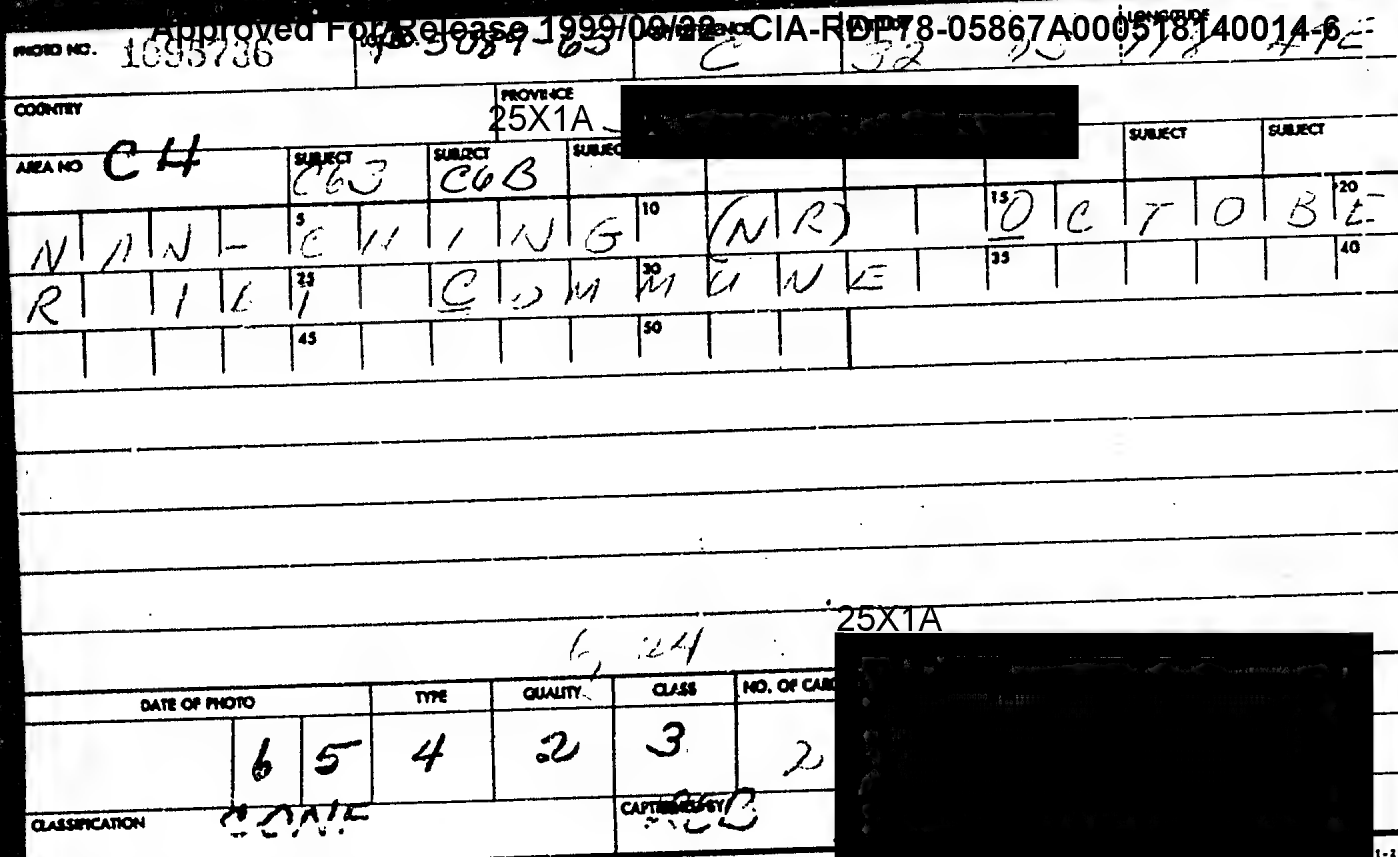 Approved For Release 1999/09/22 : CIA-RDP78-05867A000518140014-6
PHOTO NO. 1095736 C 32 LONGITUDE
COUNTRY PROVINCE
25X1A
AREA NO C4 SUBJECT C63 SUBJECT C6B SUBJEC SUBJECT SUBJECT
NAN-CHING (NR) OCTOBE
5 10 15 20
R 1ST COMMUNE
25 30 35 40
45 50
25X1A
6, 24
DATE OF PHOTO TYPE QUALITY CLASS NO. OF CARD
65 4 2 3 2
CLASSIFICATION CONF CAPTIONED BY